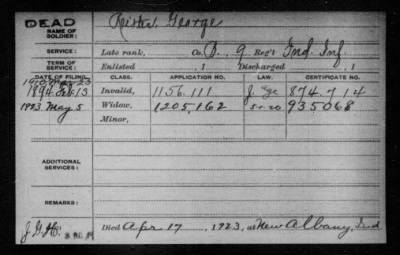 DEAD
NAME OF SOLDIER: George
SERVICE: Late rank, Co. D, 9 Reg't Ind. Inf.
TERM OF SERVICE: Enlisted , 1 Discharged , 1
DATE OF FILING. CLASS. APPLICATION NO. LAW. CERTIFICATE NO.
1894 13 Invalid, 1156.111 874.714
1923 May 5 Widow, 1205,162 935068
Minor,
ADDITIONAL SERVICES:
REMARKS:
Died Apr. 17 1923, at New Albany, Ind